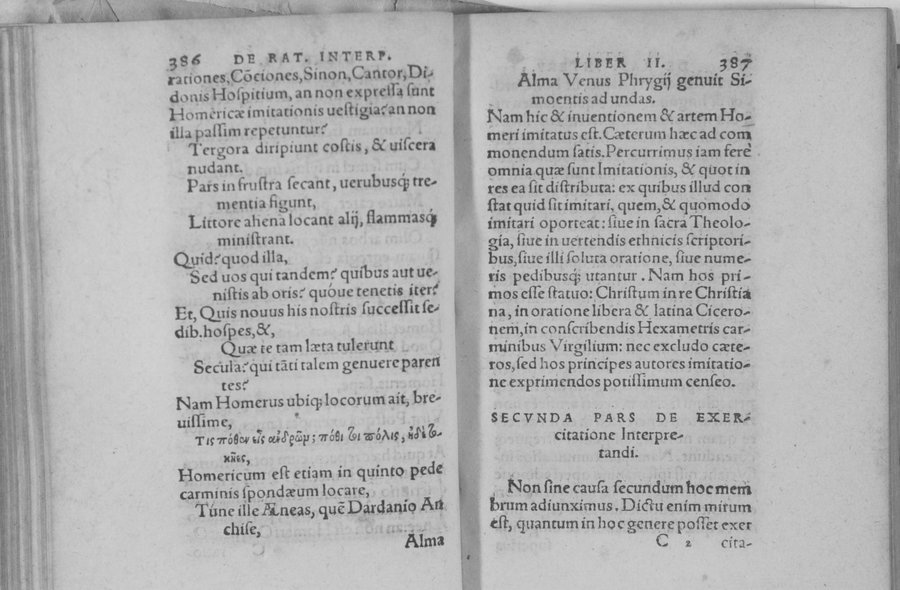 386 DE RAT. INTERP.
rationes, Cōciones, Sinon, Cantor, Di-
donis Hospitium, an non expressa sunt
Homericæ imitationis uestigia? an non
illa passim repetuntur?
Tergora diripiunt costis, & uiscera
nudant.
Pars in frustra secant, uerubusq; tre-
mentia figunt,
Littore ahena locant alij, flammasq;
ministrant.
Quid? quod illa,
Sed uos qui tandem? quibus aut ue-
nistis ab oris? quóue tenetis iter?
Et, Quis nouus his nostris successit se-
dib. hospes, &,
Quæ te tam læta tulerunt
Secula? qui tāti talem genuere paren
tes?
Nam Homerus ubiq; locorum ait, bre-
uissime,
Τις πόθεν εἰς ἀνδρῶν; πόθι τοι πόλις, ἠδὲ το-
κῆες,
Homericum est etiam in quinto pede
carminis spondæum locare,
Túne ille Æneas, quē Dardanio An
chise,
Alma
LIBER II. 387
Alma Venus Phrygij genuit Si-
moentis ad undas.
Nam hic & inuentionem & artem Ho-
meri imitatus est. Cæterum hæc ad com
monendum satis. Percurrimus iam ferè
omnia quæ sunt Imitationis, & quot in
res ea sit distributa: ex quibus illud con
stat quid sit imitari, quem, & quomodo
imitari oporteat: siue in sacra Theolo-
gia, siue in uertendis ethnicis scriptori-
bus, siue illi soluta oratione, siue nume-
ris pedibusq; utantur. Nam hos pri-
mos esse statuo: Christum in re Christia
na, in oratione libera & latina Cicero-
nem, in conscribendis Hexametris car-
minibus Virgilium: nec excludo cæte-
ros, sed hos principes autores imitatio-
ne exprimendos potissimum censeo.
SECVNDA PARS DE EXER-
citatione Interpre-
tandi.
Non sine causa secundum hoc mem
brum adiunximus. Dictu enim mirum
est, quantum in hoc genere posset exer
C 2 cita-